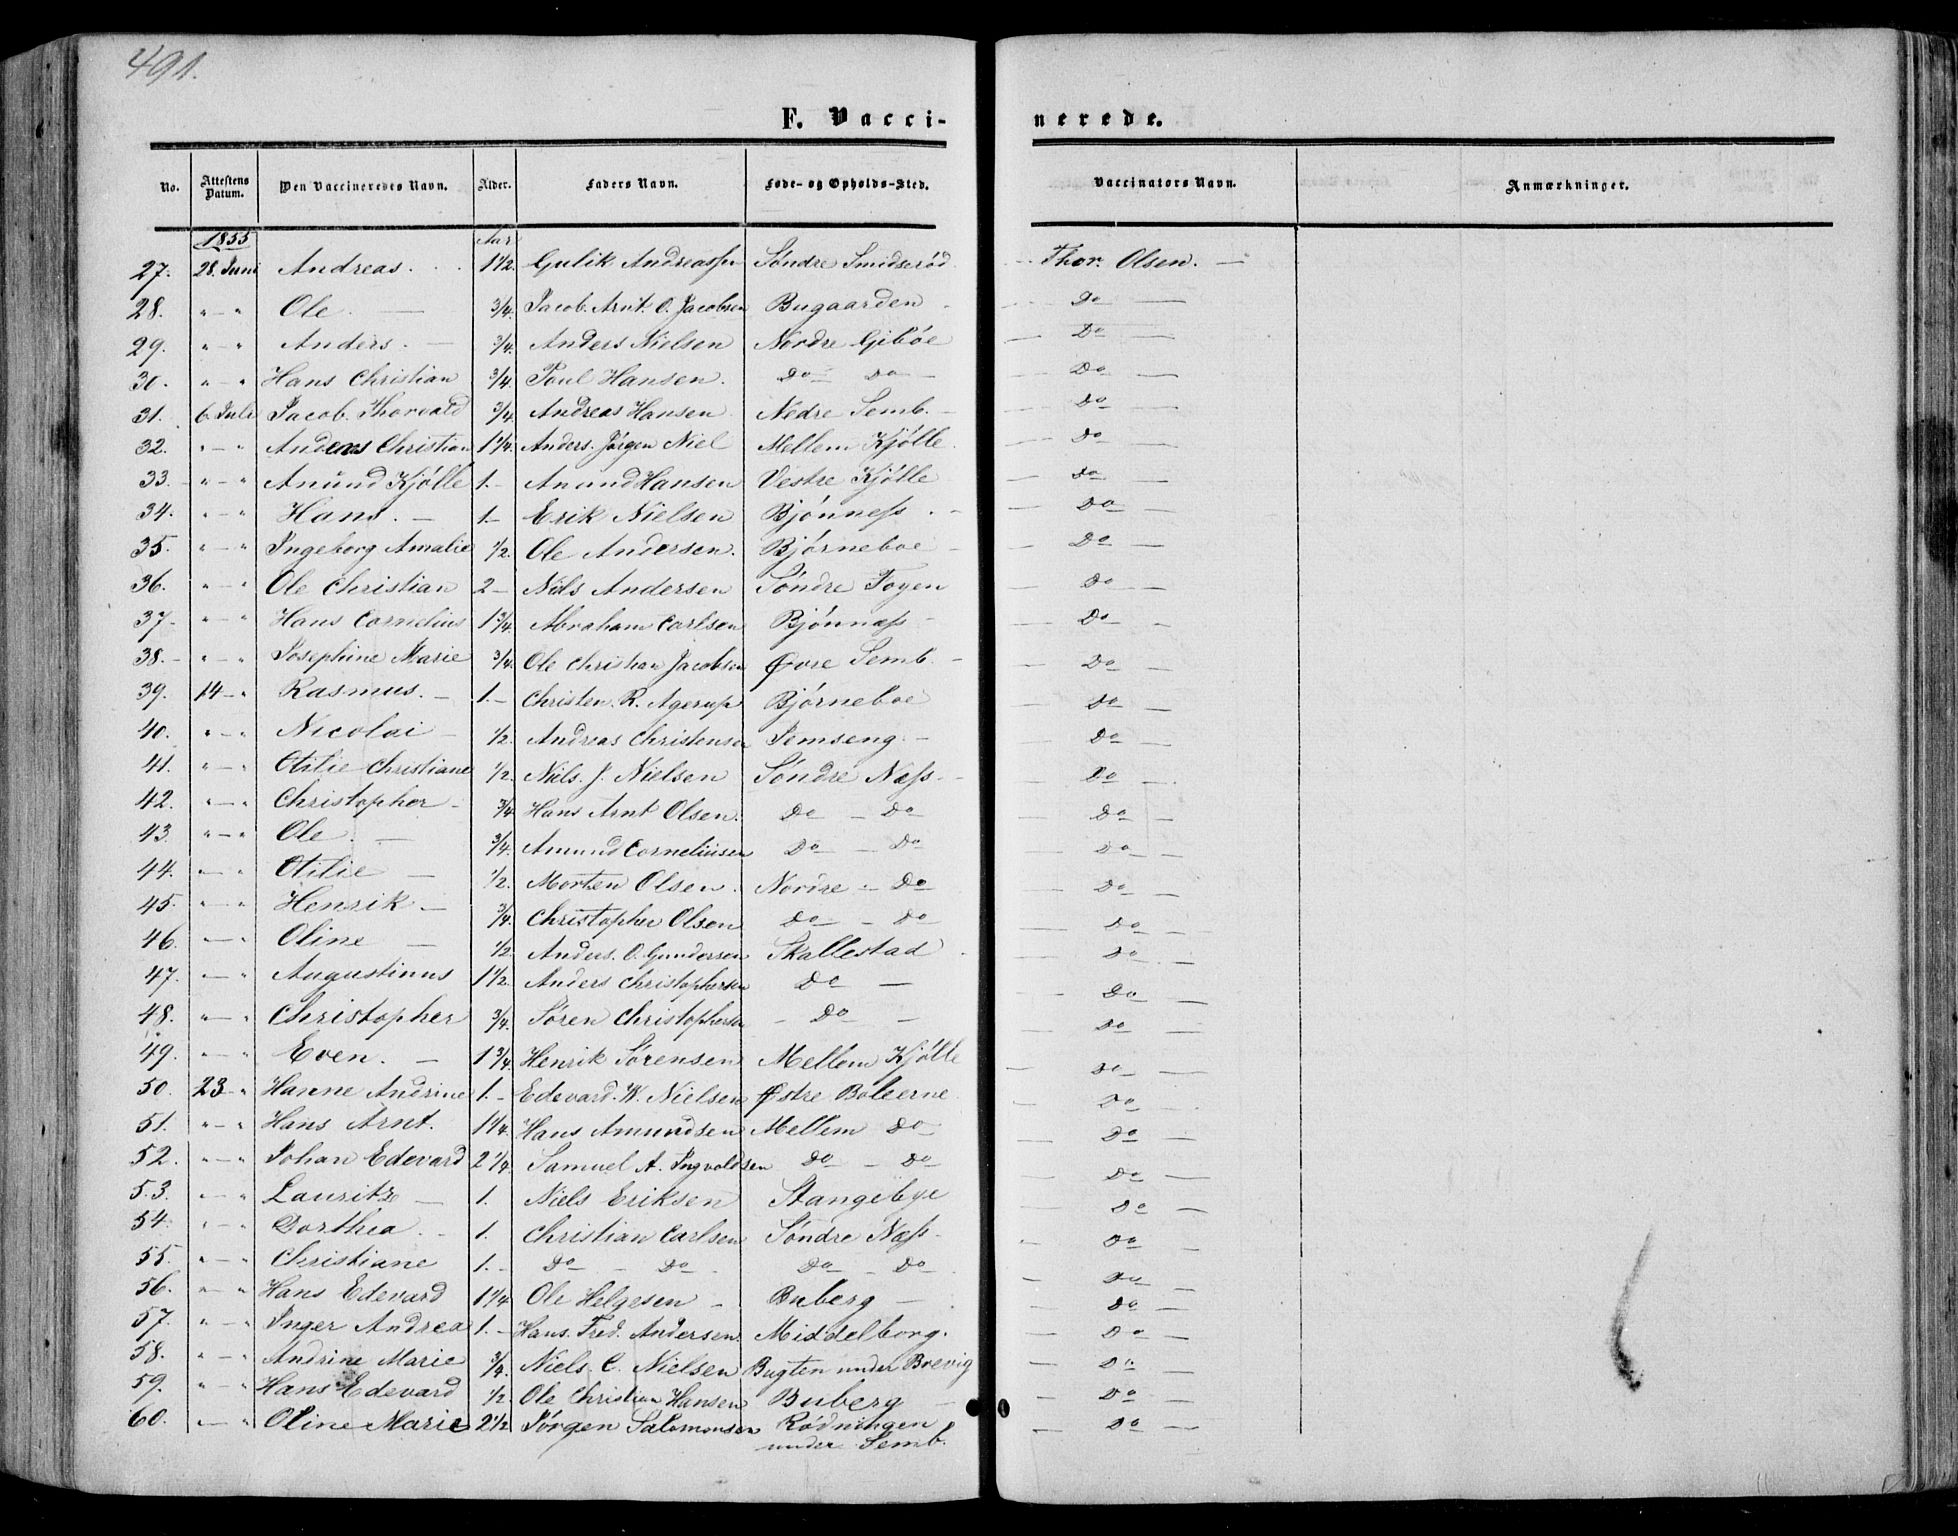 491.
F. Vacci-nerede.
No. Attestens Datum. Den Vaccineredes Navn. Alder. Faders Navn. Føde- og Opholds-Sted. Vaccinators Navn. Anmærkninger.
1855 Aar
27. 28. Juni Andreas. 1 1/2 Gulik Andreassen Søndre Smidsrød Thor. Olsen. —
28. " — " Ole. — 3/4. Jacob Arnt O. Jacobsen Bugaarden — Do —
29. " — " Anders. — 3/4. Anders Nielsen Nordre Gibøe — Do —
30. " — " Hans Christian 3/4. Poul Hansen. Do — Do — — Do —
31. 6. Juli Jacob Thorvald 3/4. Andreas Hansen Nedre Semb. — — Do —
32. " — " Anders Christian 1 1/4. Anders. Jørgen Niel Mellem Kjølle. — Do —
33. " — " Amund Kjølle 1. — Amund Hansen Vestre Kjølle — Do —
34. " — " Hans. — 1. — Erik Nielsen Bjønness. — — Do —
35. " — " Ingeborg Amalie 1/2. Ole Andersen. Bjørneboe — — Do —
36. " — " Ole Christian 2 — Niels Andersen Søndre Foyen — Do —
37. " — " Hans Cornelius 1 3/4. Abraham Carlsen Bjønnæss — — Do —
38. — " — " Josephine Marie 3/4. Ole Christian Jacobsen Øvre Semb. — — Do —
39. 14 — " Rasmus. — 1. — Christen. R. Agerup Bjørneboe — Do —
40. " — " Nicolai — 1/2. Andreas Christensen Jemseng. — — Do —
41. " — " Otilie Christiane 1/2. Niels. J. Nielsen Søndre Næss. — — Do —
42. " — " Christopher — 3/4 Hans Arnt Olsen. Do — Do — Do —
43. " — " Ole. — 3/4. Amund Corneliusen Do — Do — Do —
44. " — " Otilie — 1/2. Morten Olsen. Nordre — Do — Do —
45. " — " Henrik — 3/4. Christopher Olsen Do — Do — Do —
46. " — " Oline — 1/2 Anders. O. Gundersen Skallestad. — Do —
47. " — " Augustinus 1 1/2. Anders Christophersen Do — — Do —
48. " — " Christopher 3/4. Søren Christophersen — Do — — Do —
49. " — " Even. — 1 3/4. Henrik Sørensen Mellem Kjølle — Do —
50. 23 — " Hanne Andrine 1. — Edevard. W. Nielsen Østre Bolærne — Do —
51. " — " Hans Arnt. 1 1/4. Hans Amundsen Mellem Do — Do —
52. " — " Johan Edevard 2 1/4. Samuel A. Ingvoldsen Do — Do — Do —
53. " — " Lauritz — 1. Niels Eriksen Stangebye — Do —
54. " — " Dorthea. 1. Christian Carlsen Søndre Næss — — Do —
55. " — " Christiane 1. — Do — Do — Do — Do — Do —
56. " — " Hans Edevard 1 1/4 Ole Helgesen — Buberg — — Do —
57. " — " Inger Andrea 1. — Hans. Fred. Andersen. Middelborg. — Do —
58. " — " Andrine Marie 3/4. Niels. C. Nielsen Bugten under Brevig — Do —
59. " — " Hans Edevard 1/2. Ole Christian Hansen Buberg — — Do —
60. " — " Oline Marie 2 1/2 Jørgen Salomonsen Rødningen — Do —
under Semb.